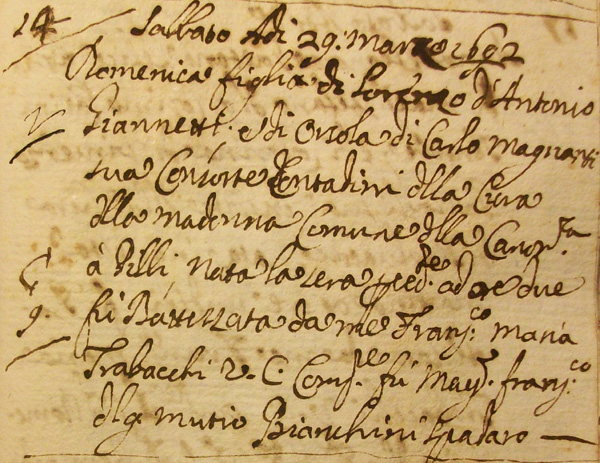 14 Sabbato Adi 29. Marzo 1692
Domenica figlia di Lorenzo d'Antonio
Giannetti. e di Orsola di Carlo Magnanti
sua Consorte Contadini dlla Cura
dlla Madonna Comune dlla Canon.ca
à Gilli, Nata la sera preced.te ad ore due
fù Battezzata da me Franj.co Maria
Trabacchi V. C. Comp.re fù Franj.co
dlq. Mutio Bianchini Spadaro